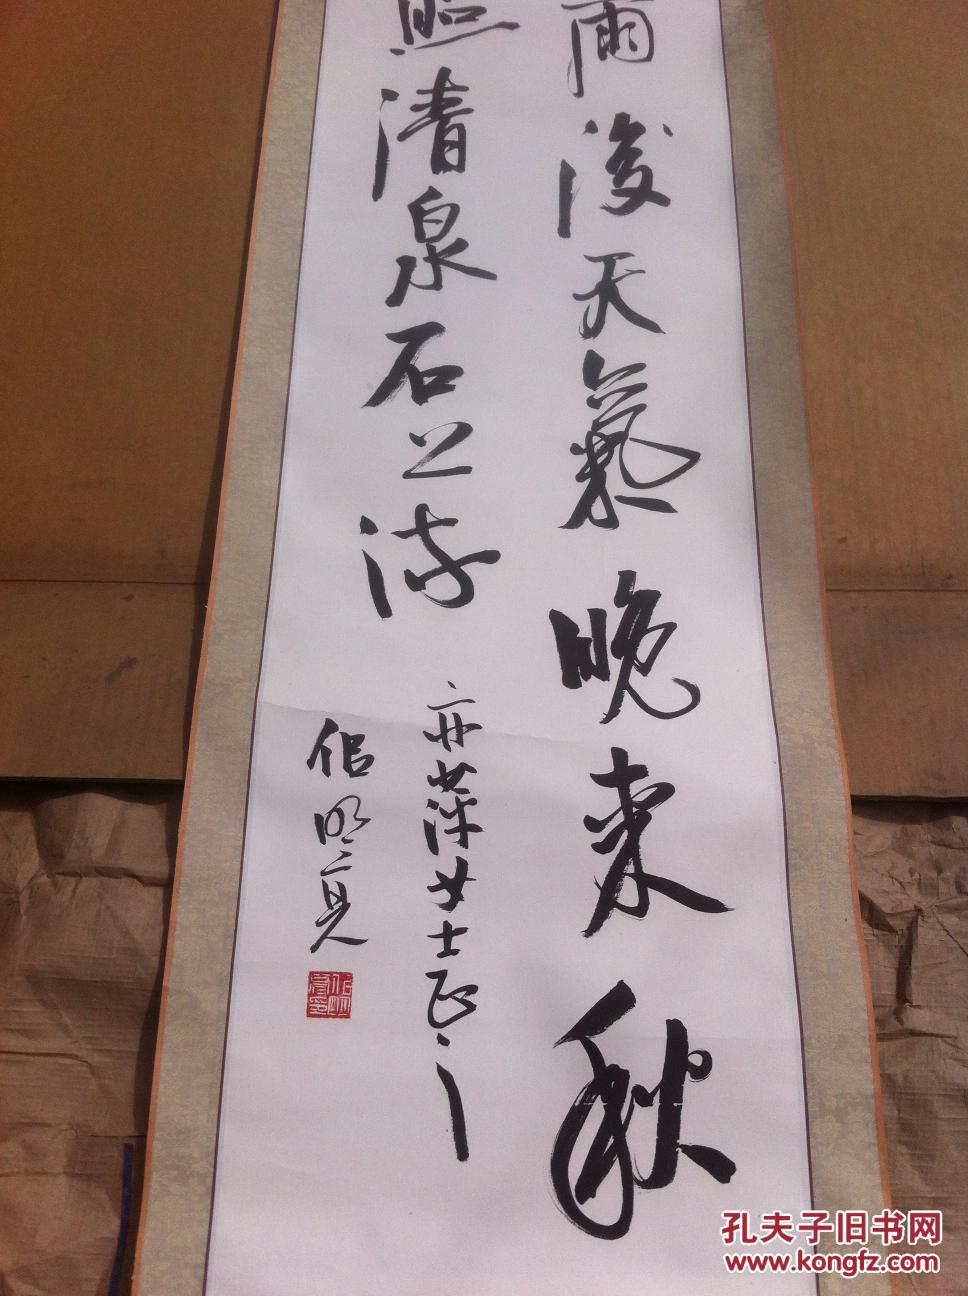 雨後天氣晚來秋
照清泉石上流
亦萍女士正之
明亮
孔夫子旧书网
www.kongfz.com